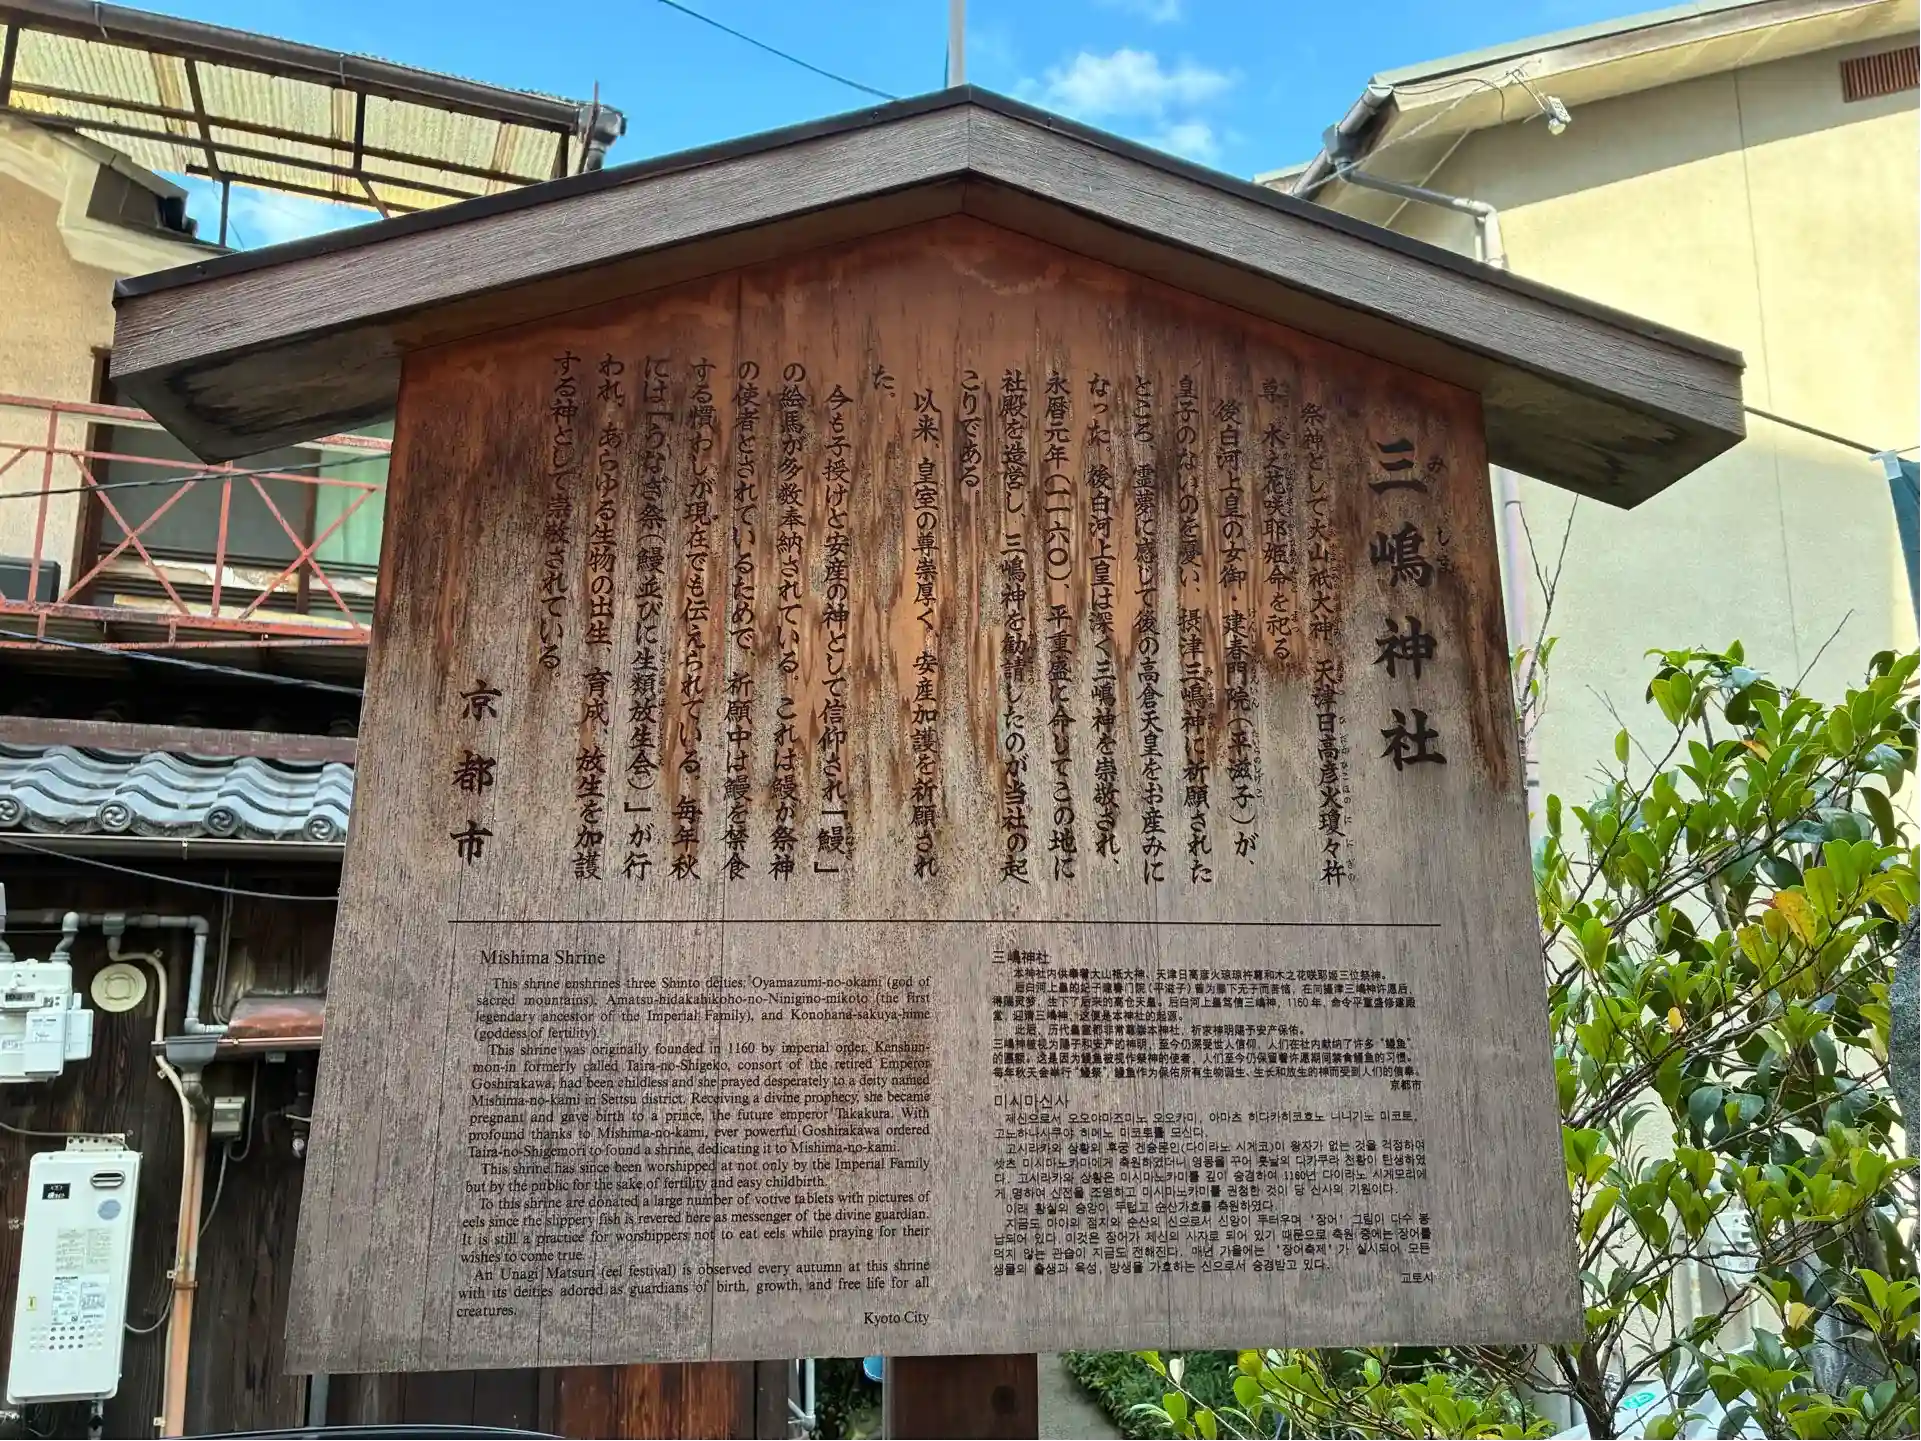 三嶋神社
み しま
祭神として大山祇大神、天津日高彦火瓊々杵
尊、木之花咲耶姫命を祀る。
後白河上皇の女御・建春門院(平滋子)が、
皇子のないのを憂い、摂津三嶋神に祈願された
ところ、霊夢に感じて後の高倉天皇をお産みに
なった。後白河上皇は深く三嶋神を崇敬され、
永暦元年(一一六〇)、平重盛に命じてこの地に
社殿を造営し、三嶋神を勧請したのが当社の起
こりである。
以来、皇室の尊崇厚く、安産加護を祈願され
た。
今も子授けと安産の神として信仰され、「鰻」
の絵馬が多数奉納されている。これは鰻が祭神
の使者とされているためで、祈願中は鰻を禁食
する慣わしが現在でも伝えられている。毎年秋
には「うなぎ祭(鰻並びに生類放生会)」が行
われ、あらゆる生物の出生、育成、放生を加護
する神として崇敬されている。
京都市
Mishima Shrine
This shrine enshrines three Shinto deities: Oyamazumi-no-okami (god of
sacred mountains), Amatsu-hidakahikoho-no-Ninigino-mikoto (the first
legendary ancestor of the Imperial Family), and Konohana-sakuya-hime
(goddess of fertility).
This shrine was originally founded in 1160 by imperial order. Kenshun-
mon-in formerly called Taira-no-Shigeko, consort of the retired Emperor
Goshirakawa, had been childless and she prayed desperately to a deity named
Mishima-no-kami in Settsu district. Receiving a divine prophecy, she became
pregnant and gave birth to a prince, the future emperor Takakura. With
profound thanks to Mishima-no-kami, ever powerful Goshirakawa ordered
Taira-no-Shigemori to found a shrine, dedicating it to Mishima-no-kami.
This shrine has since been worshipped at not only by the Imperial Family
but by the public for the sake of fertility and easy childbirth.
To this shrine are donated a large number of votive tablets with pictures of
eels since the slippery fish is revered here as messenger of the divine guardian.
It is still a practice for worshippers not to eat eels while praying for their
wishes to come true.
An Unagi Matsuri (eel festival) is observed every autumn at this shrine
with its deities adored as guardians of birth, growth, and free life for all
creatures.
Kyoto City
三嶋神社
本神社内供奉着大山祇大神、天津日高彦火琼琼杵尊和木之花咲耶姬三位祭神。
后白河上皇的妃子建春门院(平滋子)曾为膝下无子而苦恼,在向摄津三嶋神许愿后,
得赐灵梦,生下了后来的高仓天皇。后白河上皇笃信三嶋神,1160年,命令平重盛修建殿
堂,迎请三嶋神,这便是本神社的起源。
此后,历代皇室都非常尊崇本神社,祈求神明赐予安产保佑。
三嶋神被视为赐子和安产的神明,至今仍深受世人信仰,人们在社内献纳了许多“鳗鱼”
的愿额。这是因为鳗鱼被视作祭神的使者,人们至今仍保留着许愿期间禁食鳗鱼的习惯。
每年秋天会举行“鳗祭”,鳗鱼作为保佑所有生物诞生、生长和放生的神而受到人们的信奉。
京都市
미시마신사
제신으로서 오오야마즈미노 오오카미, 아마츠 히다카히코호노 니니기노 미코토,
고노하나사쿠야 히메노 미코토를 모신다.
고시라카와 상황의 후궁 겐슌몬인(다이라노 시게코)이 왕자가 없는 것을 걱정하여
셋츠 미시마노카미에게 축원하였더니 영몽을 꾸어 훗날의 다카쿠라 천황이 탄생하였
다. 고시라카와 상황은 미시마노카미를 깊이 숭경하여 1160년 다이라노 시게모리에
게 명하여 신전을 조영하고 미시마노카미를 권청한 것이 당 신사의 기원이다.
이래 황실의 숭앙이 두텁고 순산가호를 축원하였다.
지금도 아이의 점지와 순산의 신으로서 신앙이 두터우며 '장어' 그림이 다수 봉
납되어 있다. 이것은 장어가 제신의 사자로 되어 있기 때문으로 축원 중에는 장어를
먹지 않는 관습이 지금도 전해진다. 매년 가을에는 '장어축제'가 실시되어 모든
생물의 출생과 육성, 방생을 가호하는 신으로서 숭경받고 있다.
교토시